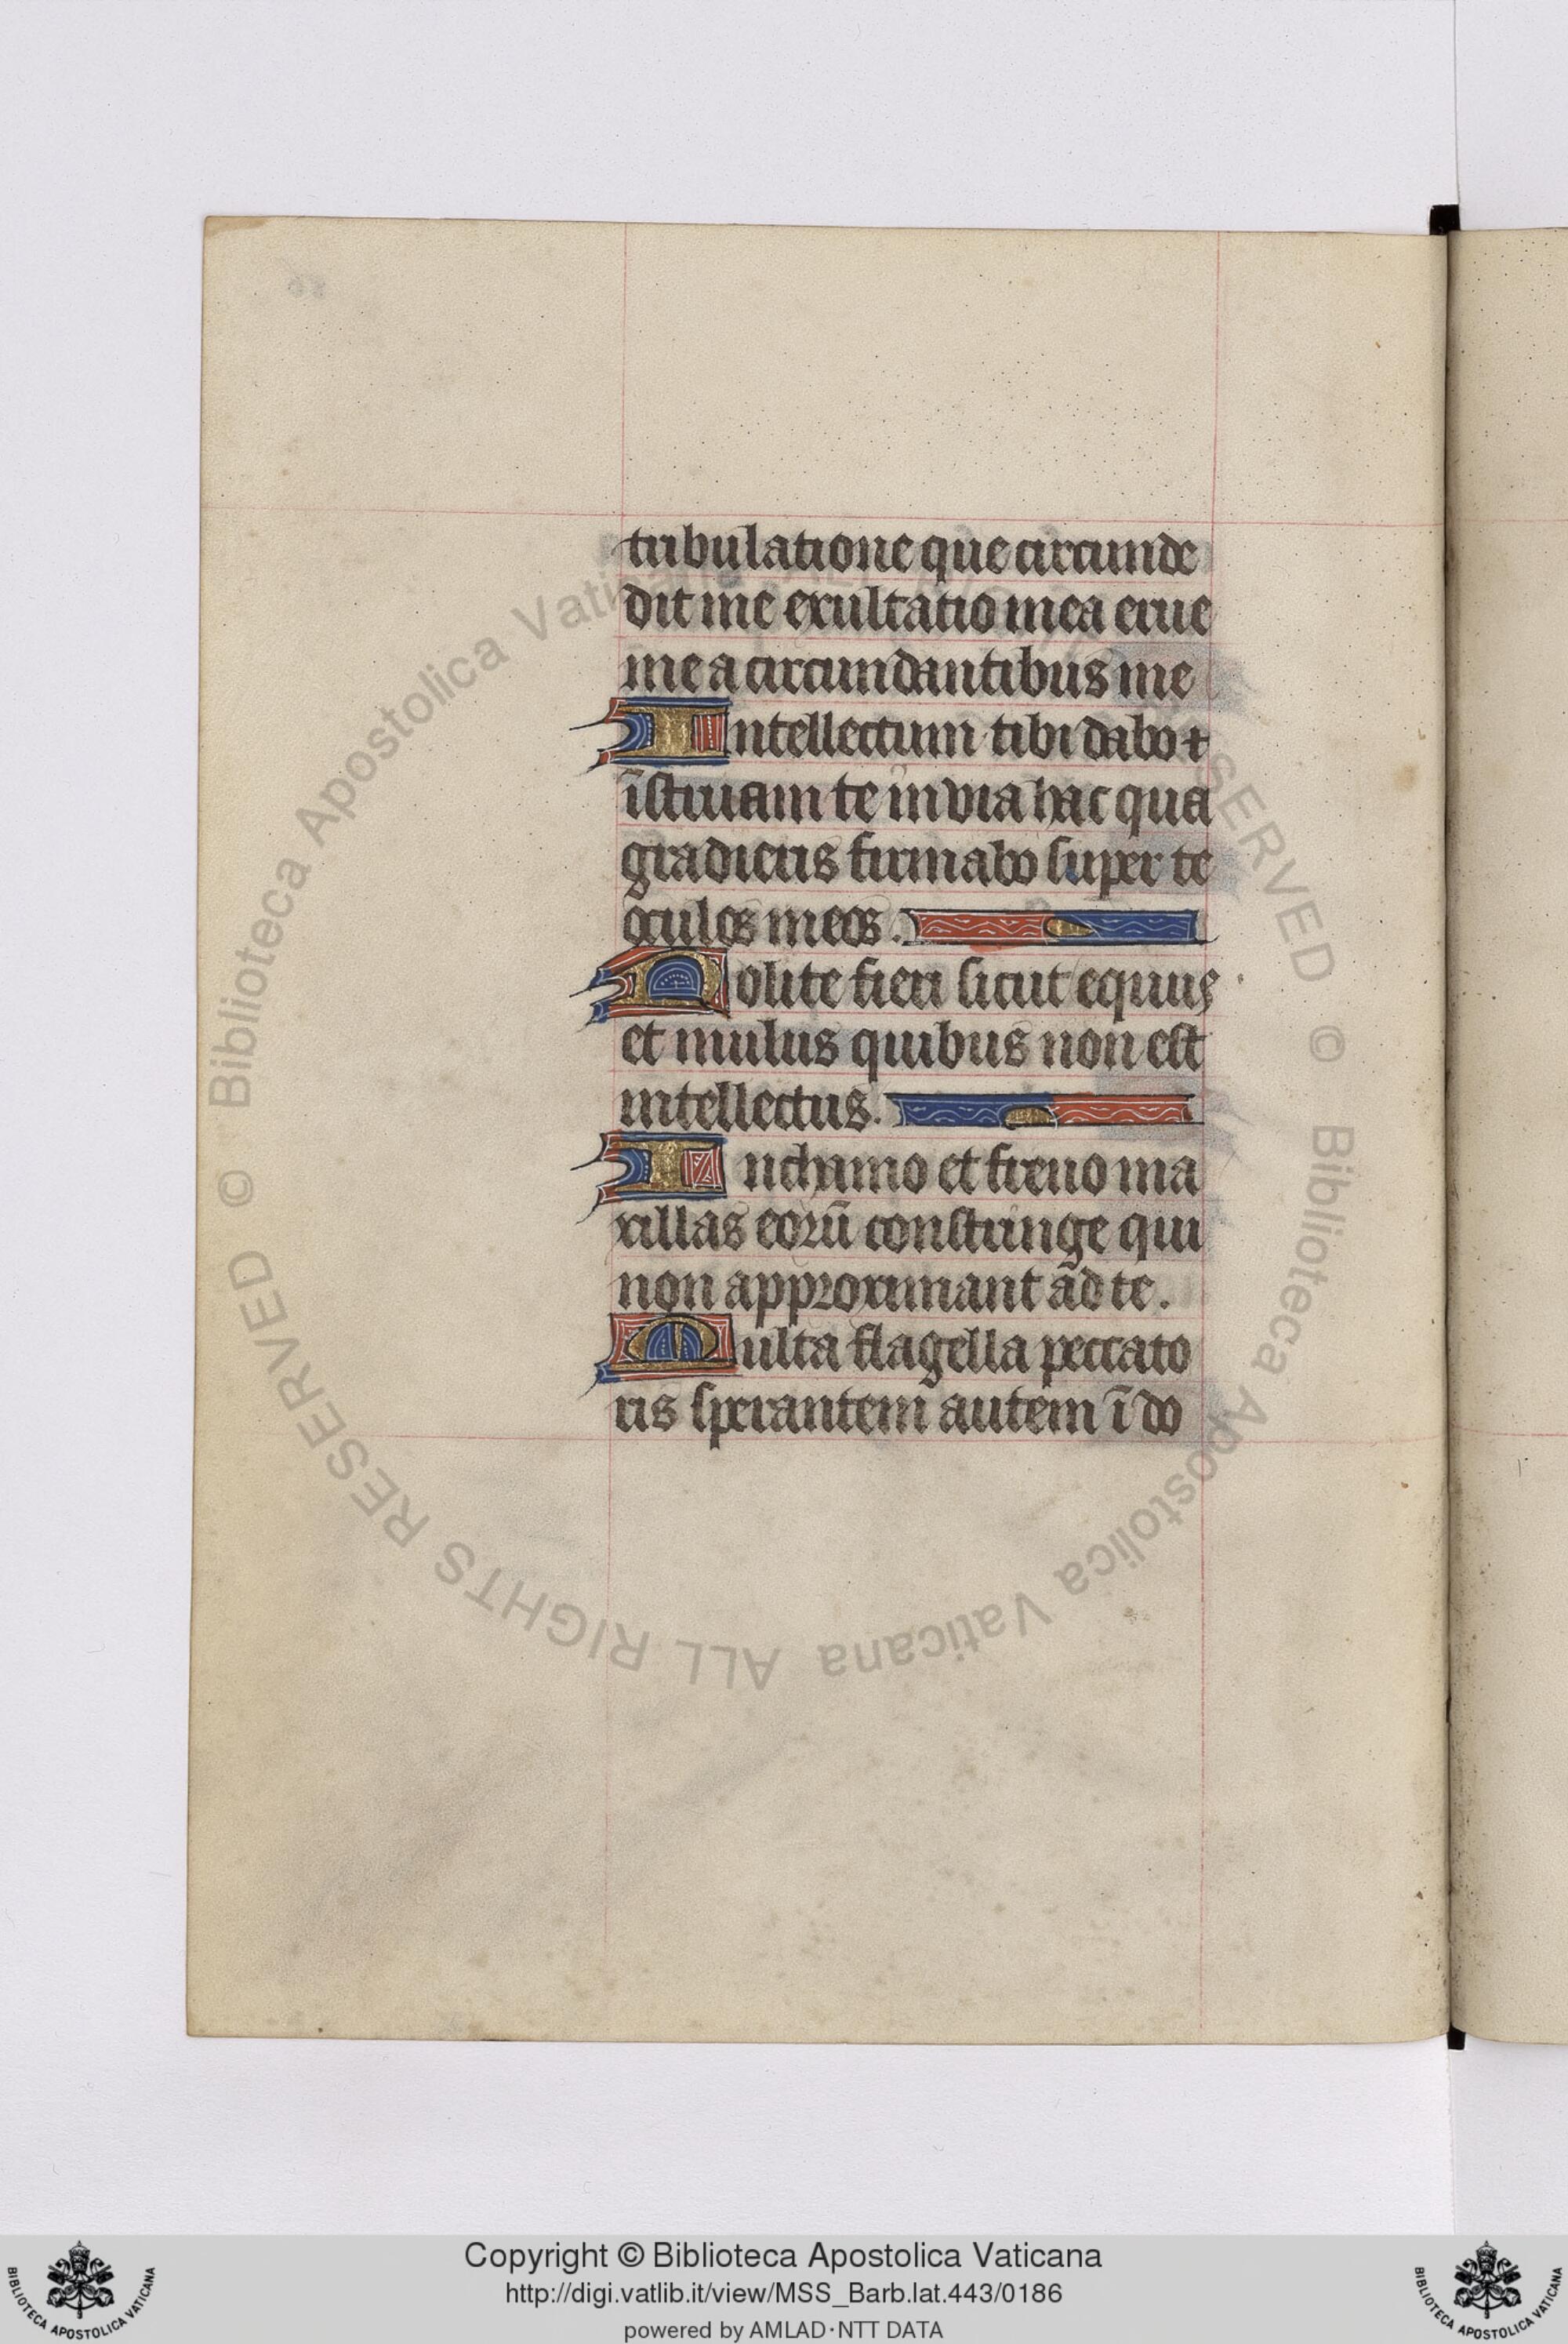 tribulatione que circunde
dit me exultatio mea erue
me a circundantibus me
Intellectum tibi dabo ⁊
īstruam te in via hac qua
gradieris firmabo super te
oculos meos.
Nolite fieri sicut equus
et mulus quibus non est
intellectus.
In chamo et freno ma
xillas eorū constringe qui
non approximant ad te.
Multa flagella peccato
ris sperantem autem ī do
© Biblioteca Apostolica Vaticana ALL RIGHTS RESERVED
© Biblioteca Apostolica Vaticana ALL RIGHTS RESERVED
Copyright © Biblioteca Apostolica Vaticana
http://digi.vatlib.it/view/MSS_Barb.lat.443/0186
powered by AMLAD·NTT DATA
BIBLIOTECA APOSTOLICA VATICANA
BIBLIOTECA APOSTOLICA VATICANA